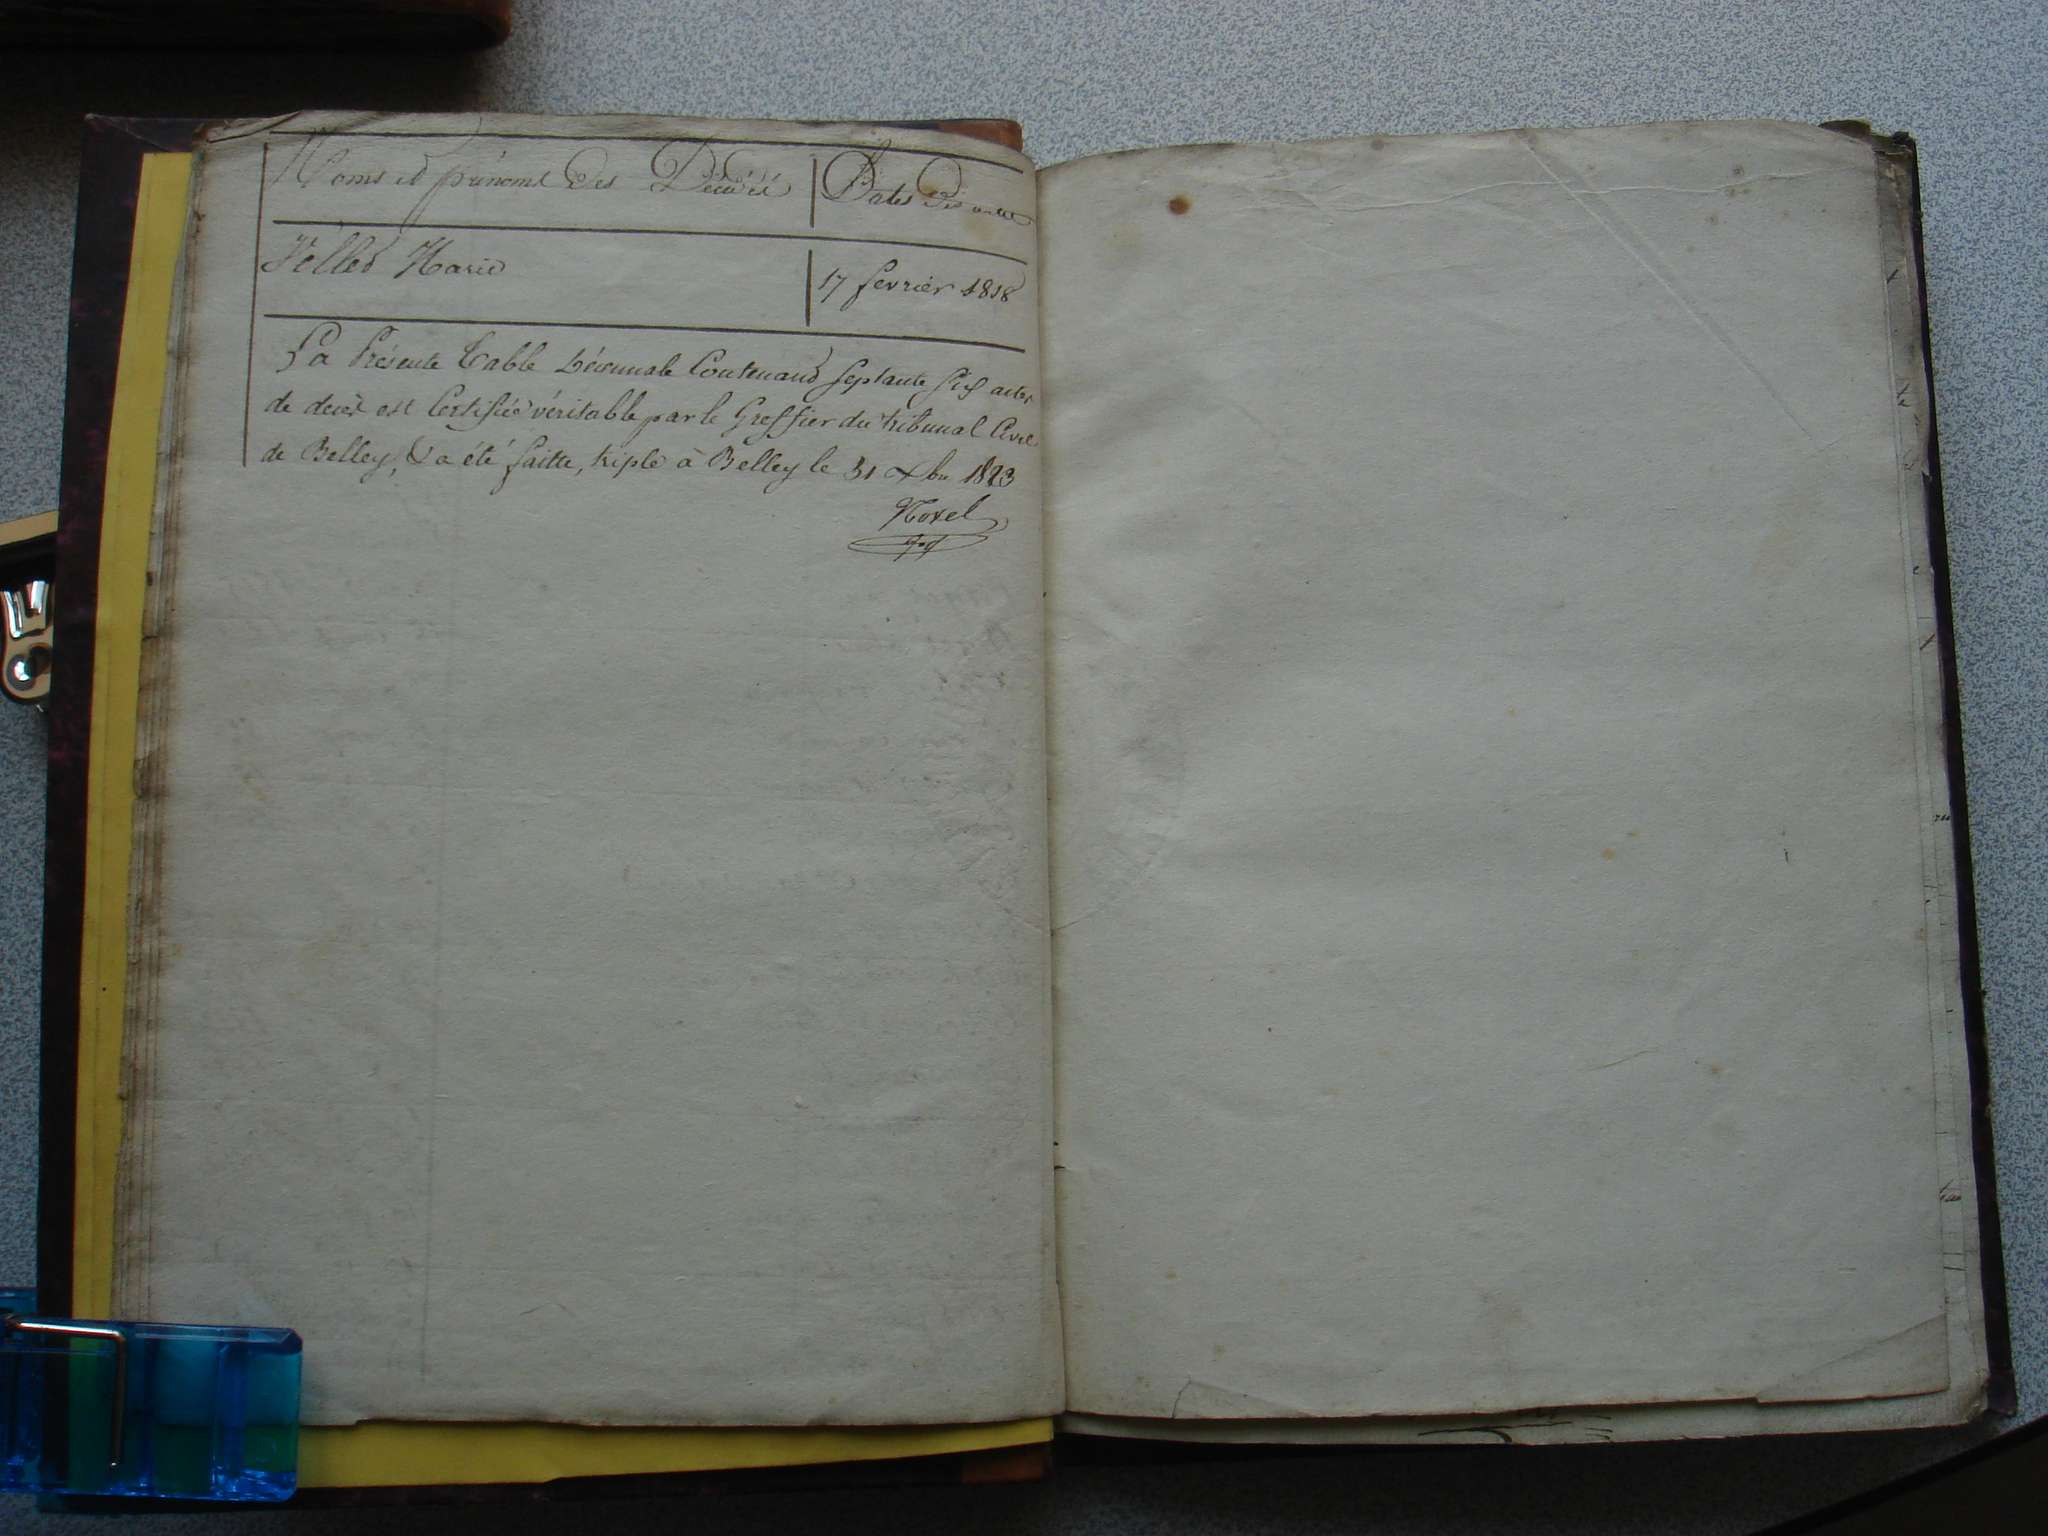 Noms et prénoms des Décédés Dates des actes
Vellet Marie 17 fevrier 1818
La Présente Table Décennale Contenand septante six actes
de decès est Certifiée véritable par le Greffier du tribunal Civil
de Belley, & a été faitte, triple à Belley le 31 Xbre 1823